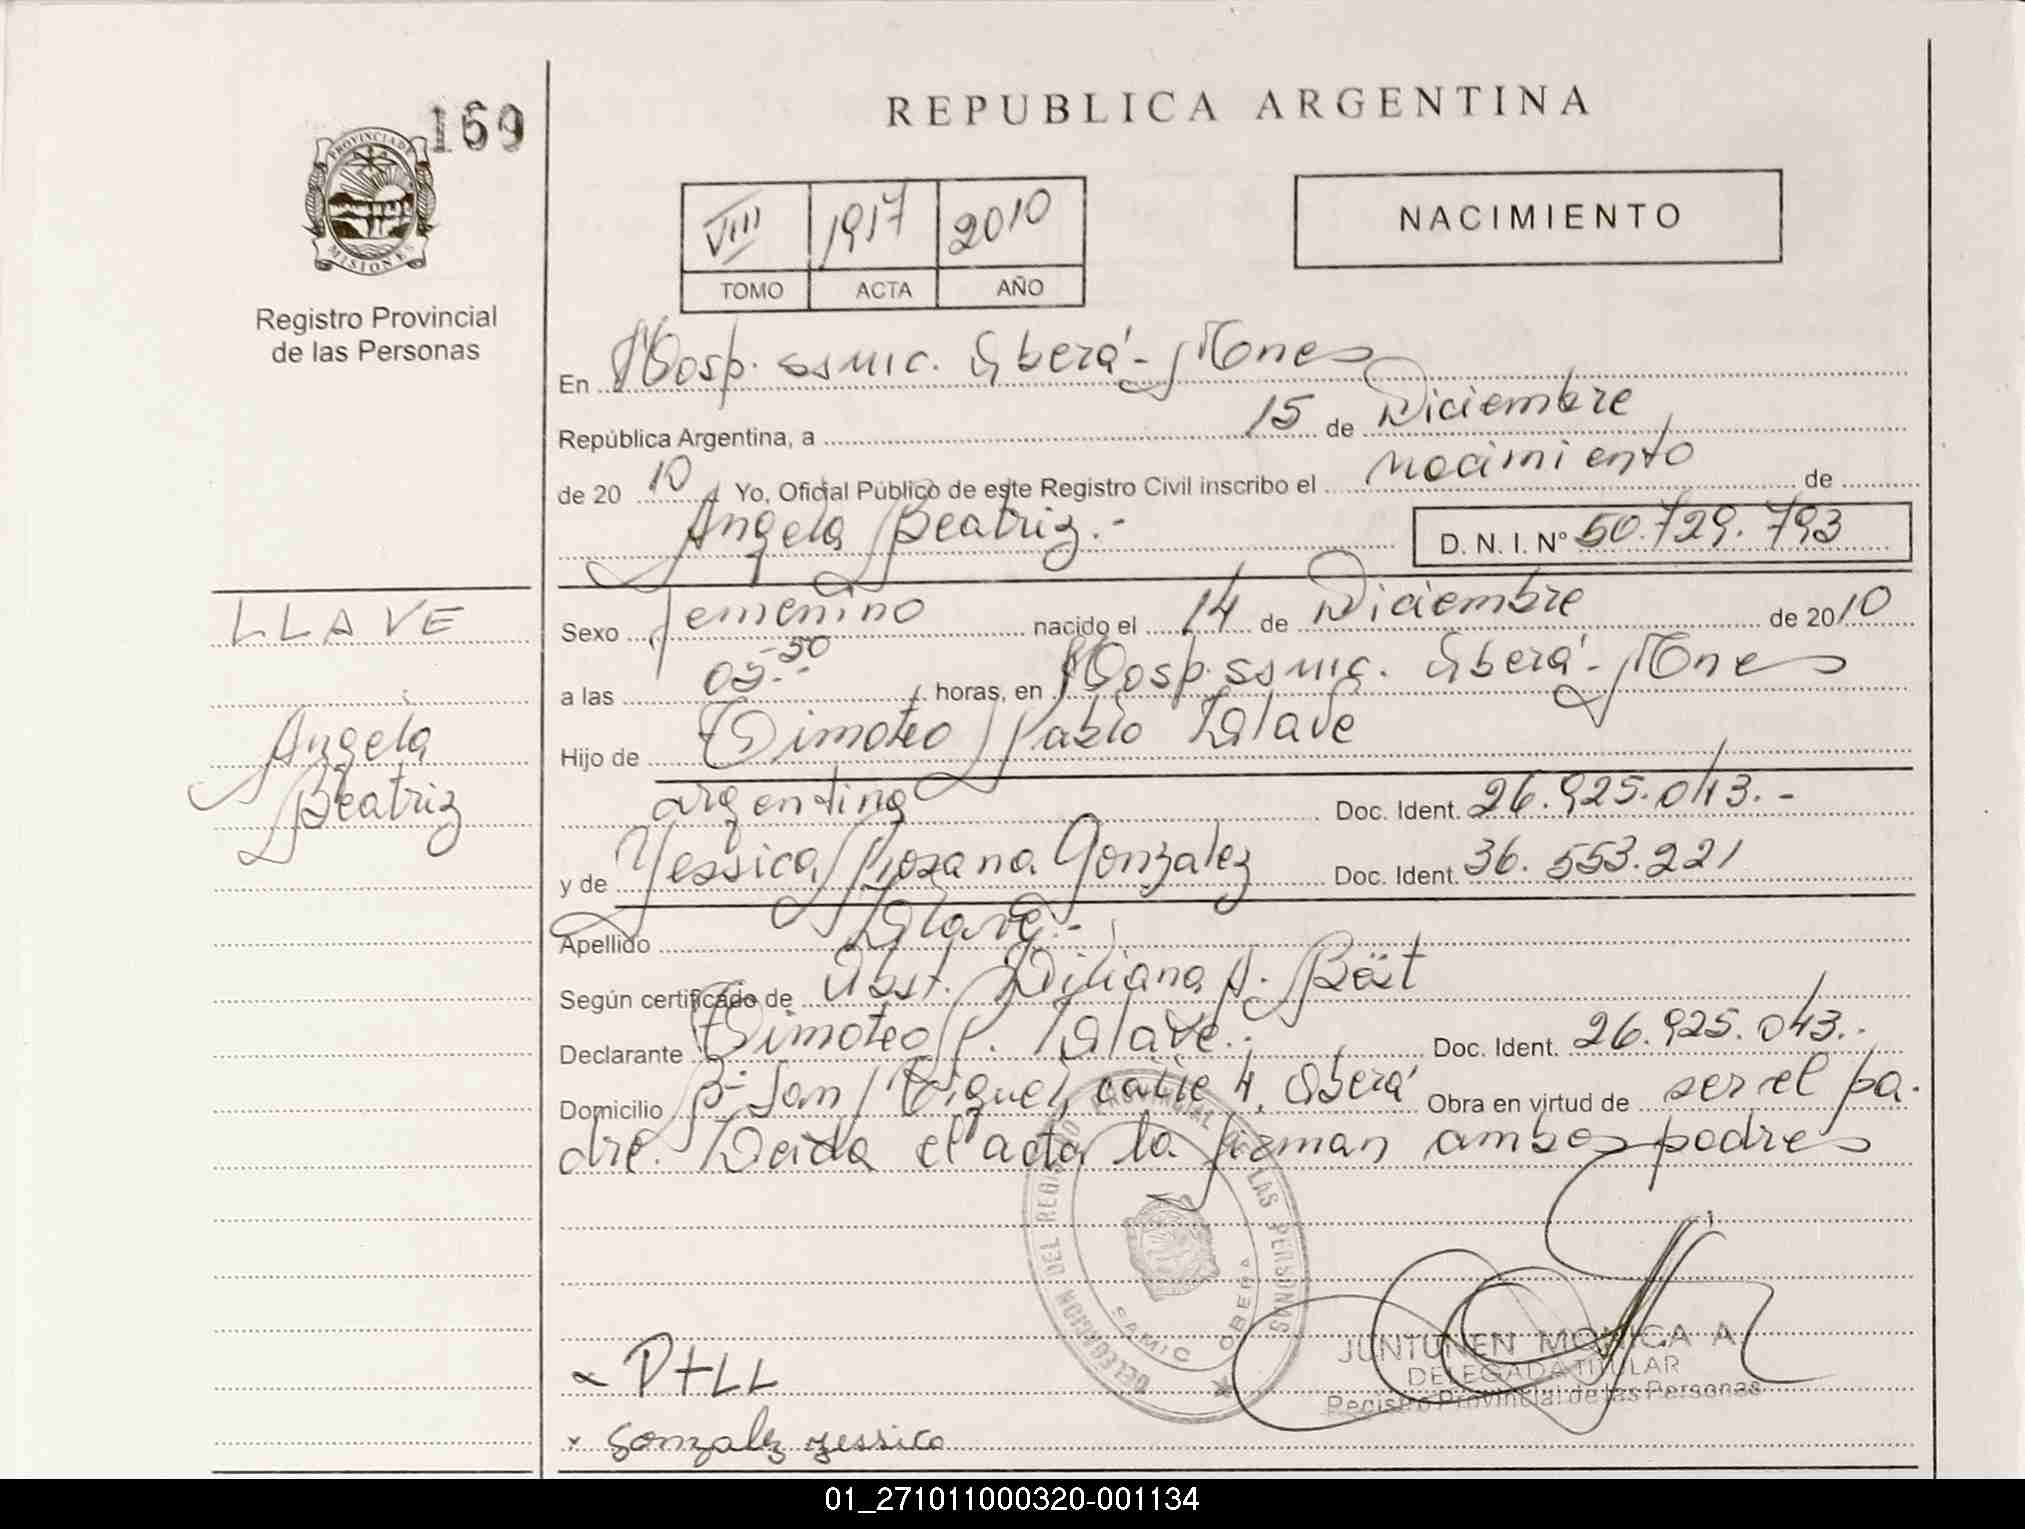 REPUBLICA ARGENTINA
169
PROVINCIA DE
MISIONES
Registro Provincial
de las Personas
VIII 1917 2010
TOMO ACTA AÑO
NACIMIENTO
En Hosp. SSMIC. Oberá - Mones
República Argentina, a 15 de Diciembre
de 20 10 Yo, Oficial Público de este Registro Civil inscribo el nacimiento de
Angela Beatriz.-
D. N. I. Nº 50.729.793
LLAVE
Angela
Beatriz
Sexo femenino nacido el 14 de Diciembre de 2010
a las horas, en Hosp. SSMIC. Oberá - Mones
Hijo de Timoteo Pablo Llave
argentina Doc. Ident. 26.925.043.-
y de Yessica Rosana Gonzalez Doc. Ident. 36.553.221
Apellido Llave.-
Según certificado de Obst. Liliana A. Bäst
Declarante Timoteo P. Llave.- Doc. Ident. 26.925.043.-
Domicilio Bº San Miguel, calle 4, Oberá Obra en virtud de ser el pa-
dre. Leída el acta la firman ambos padres
DELEGACION DEL REGISTRO PROVINCIAL DE LAS PERSONAS
SAMIC OBERA
JUNTUNEN MONICA A.
DELEGADA TITULAR
Registro Provincial de las Personas
x P+LL
x Gonzalez yessica
01_271011000320-001134